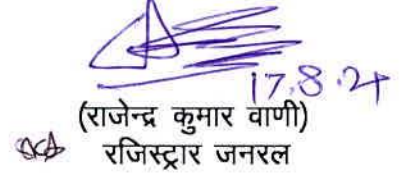 17.8.21
(राजेन्द्र कुमार वाणी)
रजिस्ट्रार जनरल